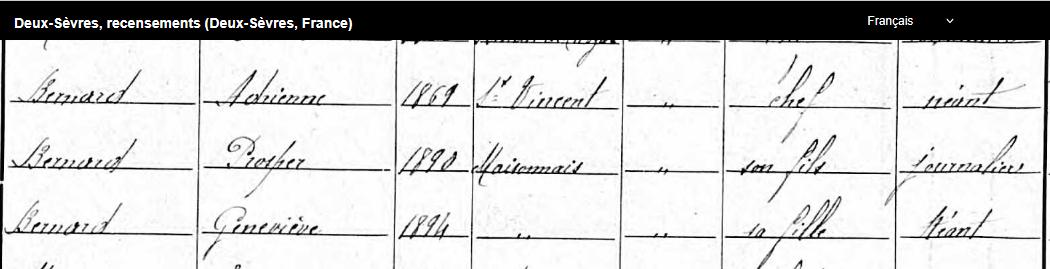 Deux-Sèvres, recensements (Deux-Sèvres, France) Français
Bernard Adrienne 1869 St Vincent " chef néant
Bernard Prosper 1890 Maisonnais " son fils journalier
Bernard Geneviève 1894 " " sa fille Néant